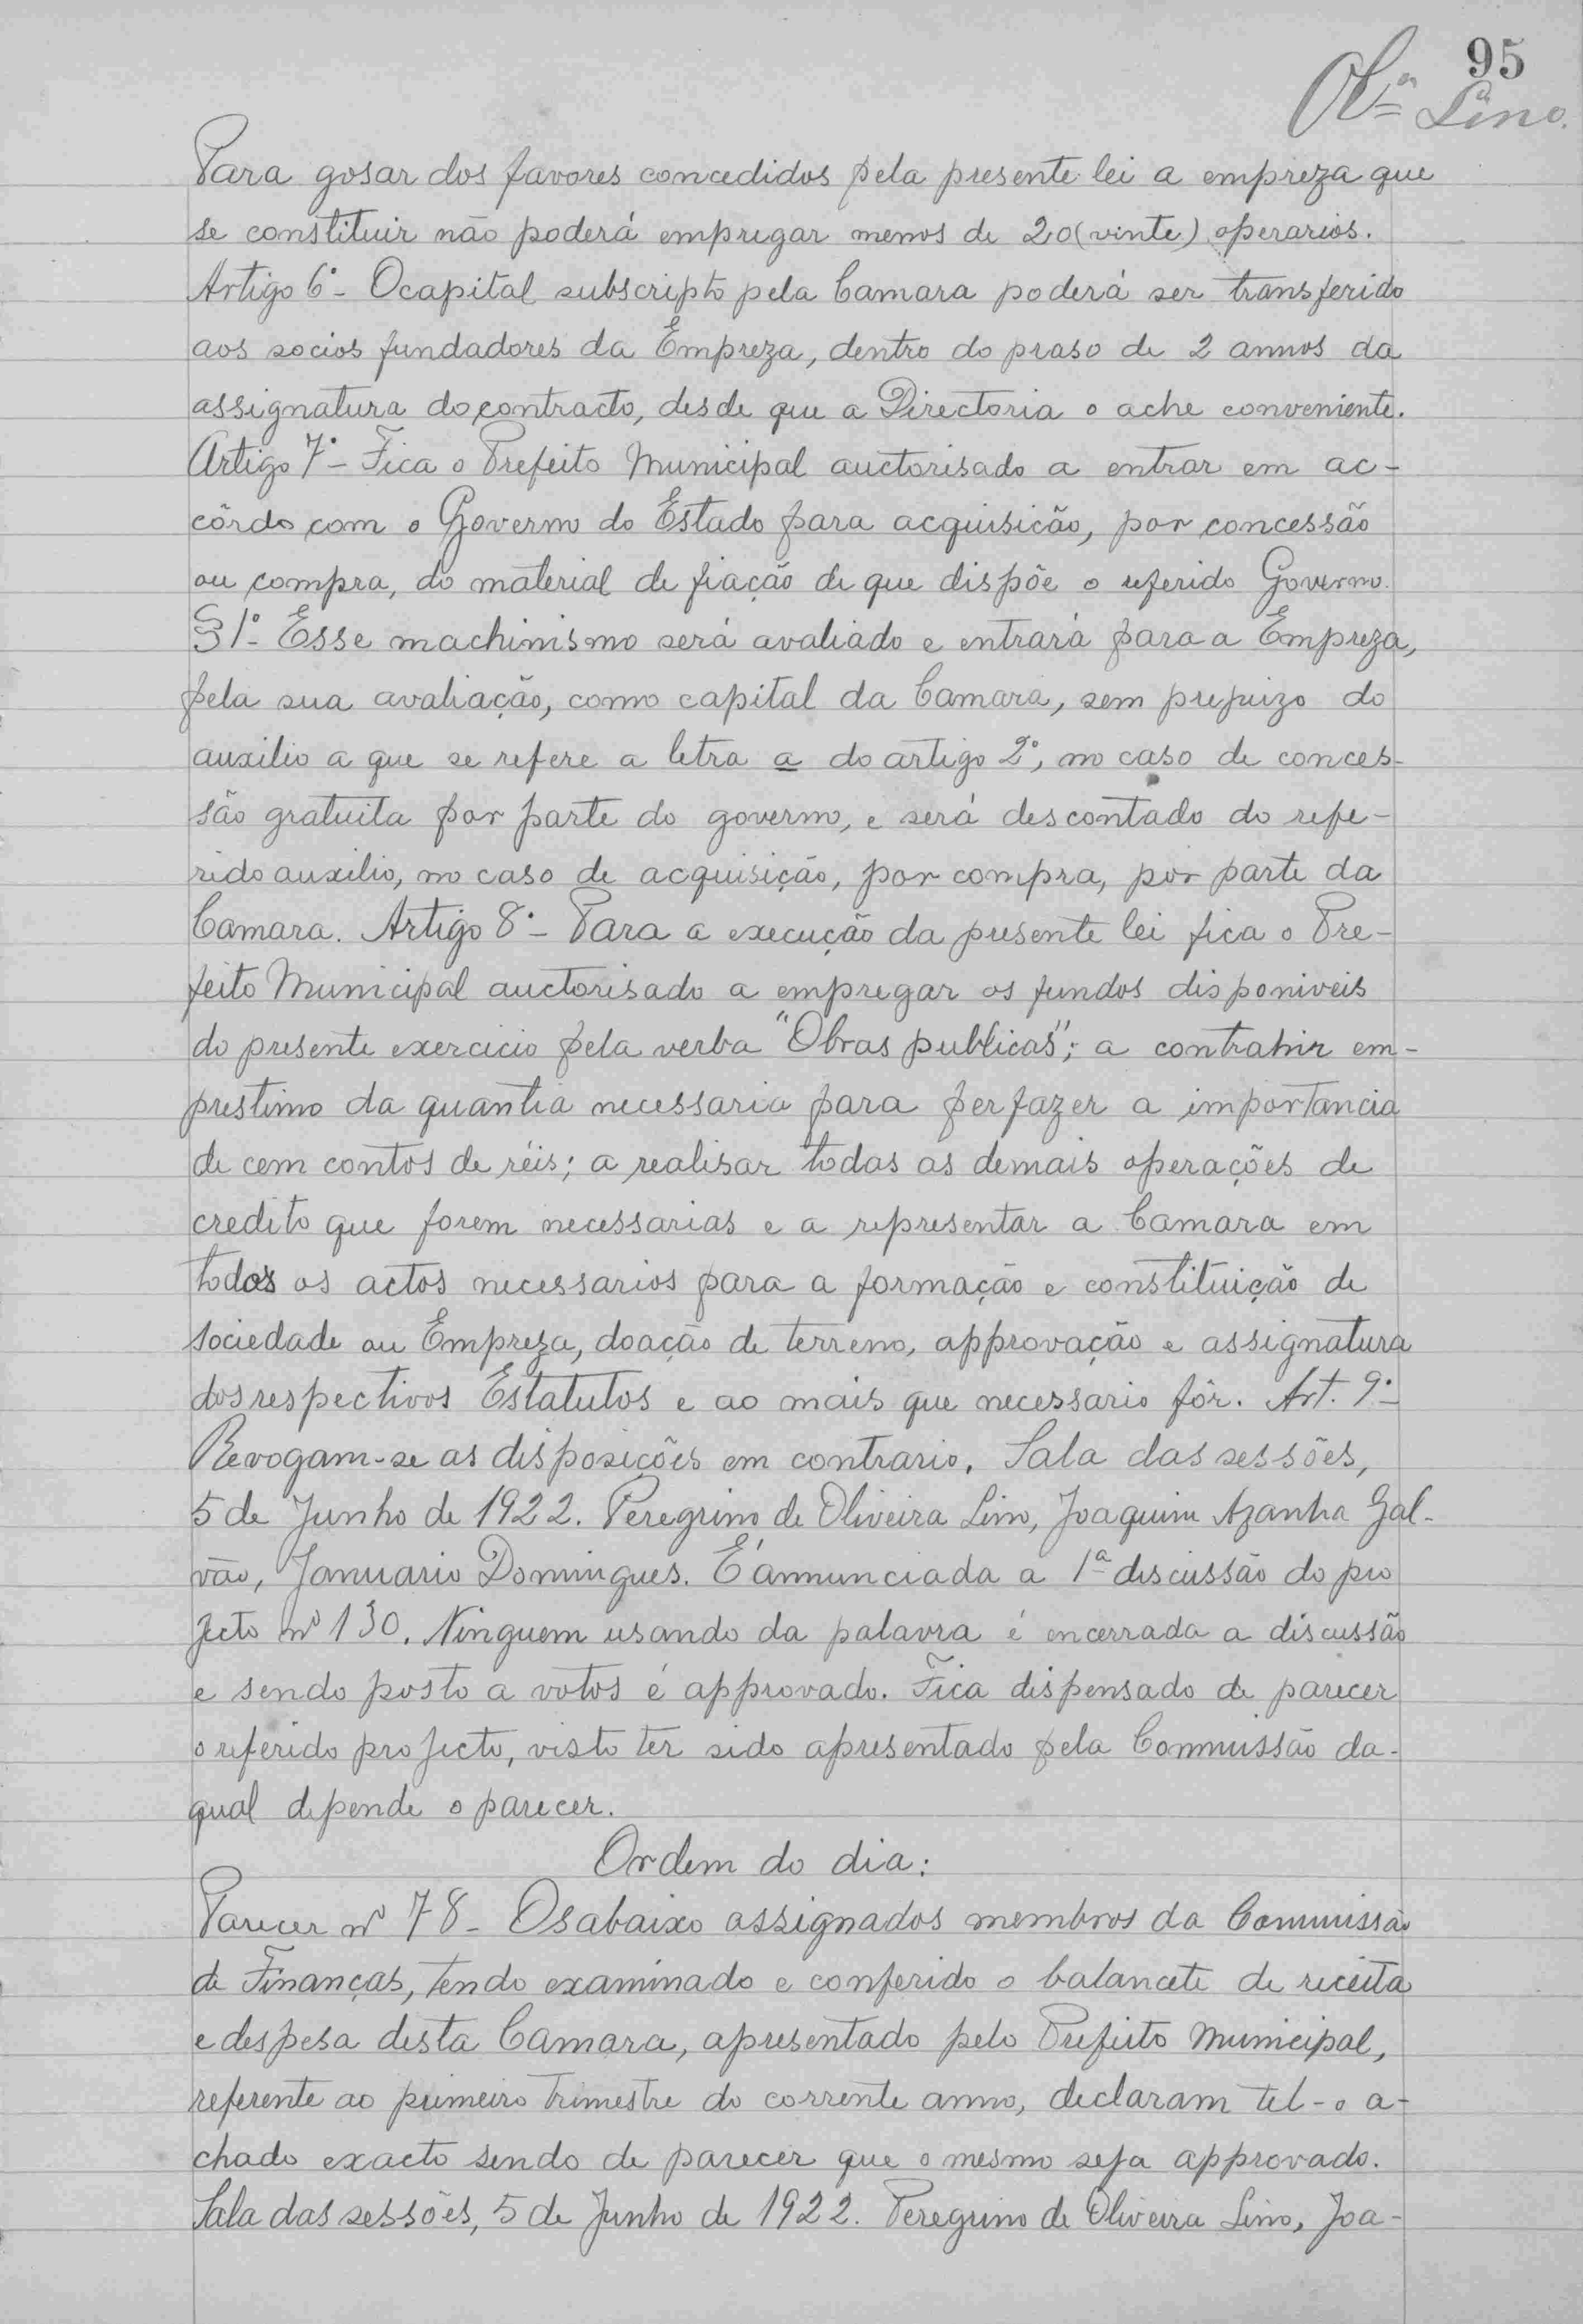 95
Olª Lino.
Para gosar dos favores concedidos pela presente lei a empreza que
se constituir não poderá empregar menos de 20 (vinte) operarios.
Artigo 6º - O capital subscripto pela Camara poderá ser transferido
aos socios fundadores da Empreza, dentro do praso de 2 annos da
assignatura do contracto, desde que a Directoria o ache conveniente.
Artigo 7º - Fica o Prefeito Municipal auctorisado a entrar em ac-
côrdo com o Governo do Estado para acquisicão, por concessão
ou compra, do material de fiação de que dispõe o referido Governo.
§ 1º - Esse machinismo será avaliado e entrará para a Empreza,
pela sua avaliação, como capital da Camara, sem prejuizo do
auxilio a que se refere a letra a do artigo 2º, no caso de conces-
são gratuita por parte do governo, e será descontado do refe-
rido auxilio, no caso de acquisição, por compra, por parte da
Camara. Artigo 8º - Para a execução da presente lei fica o Pre-
feito Municipal auctorisado a empregar os fundos disponiveis
do presente exercicio pela verba "Obras publicas"; a contrahir em-
prestimo da quantia necessaria para perfazer a importancia
de cem contos de réis; a realisar todas as demais operações de
credito que forem necessarias e a representar a Camara em
todos os actos necessarios para a formação e constituição de
sociedade ou Empreza, doação de terreno, approvação e assignatura
dos respectivos Estatutos e ao mais que necessario fôr. Art. 9º -
Revogam-se as disposições em contrario. Sala das sessões,
5 de Junho de 1922. Peregrino de Oliveira Lino, Joaquim Azanha Gal-
vão, Januario Domingues. É annunciada a 1ª discussão do pro
jecto nº 130. Ninguem usando da palavra é encerrada a discussão
e sendo posto a votos é approvado. Fica dispensado de parecer
o referido projecto, visto ter sido apresentado pela Commissão da-
qual depende o parecer.
Ordem do dia:
Parecer nº 78 - Os abaixo assignados membros da Commissão
de Finanças, tendo examinado e conferido o balancete de receita
e despesa desta Camara, apresentado pelo Prefeito Municipal,
referente ao primeiro trimestre do corrente anno, declaram tel-o a-
chado exacto sendo de parecer que o mesmo seja approvado.
Sala das sessões, 5 de Junho de 1922. Peregrino de Oliveira Lino, Joa-